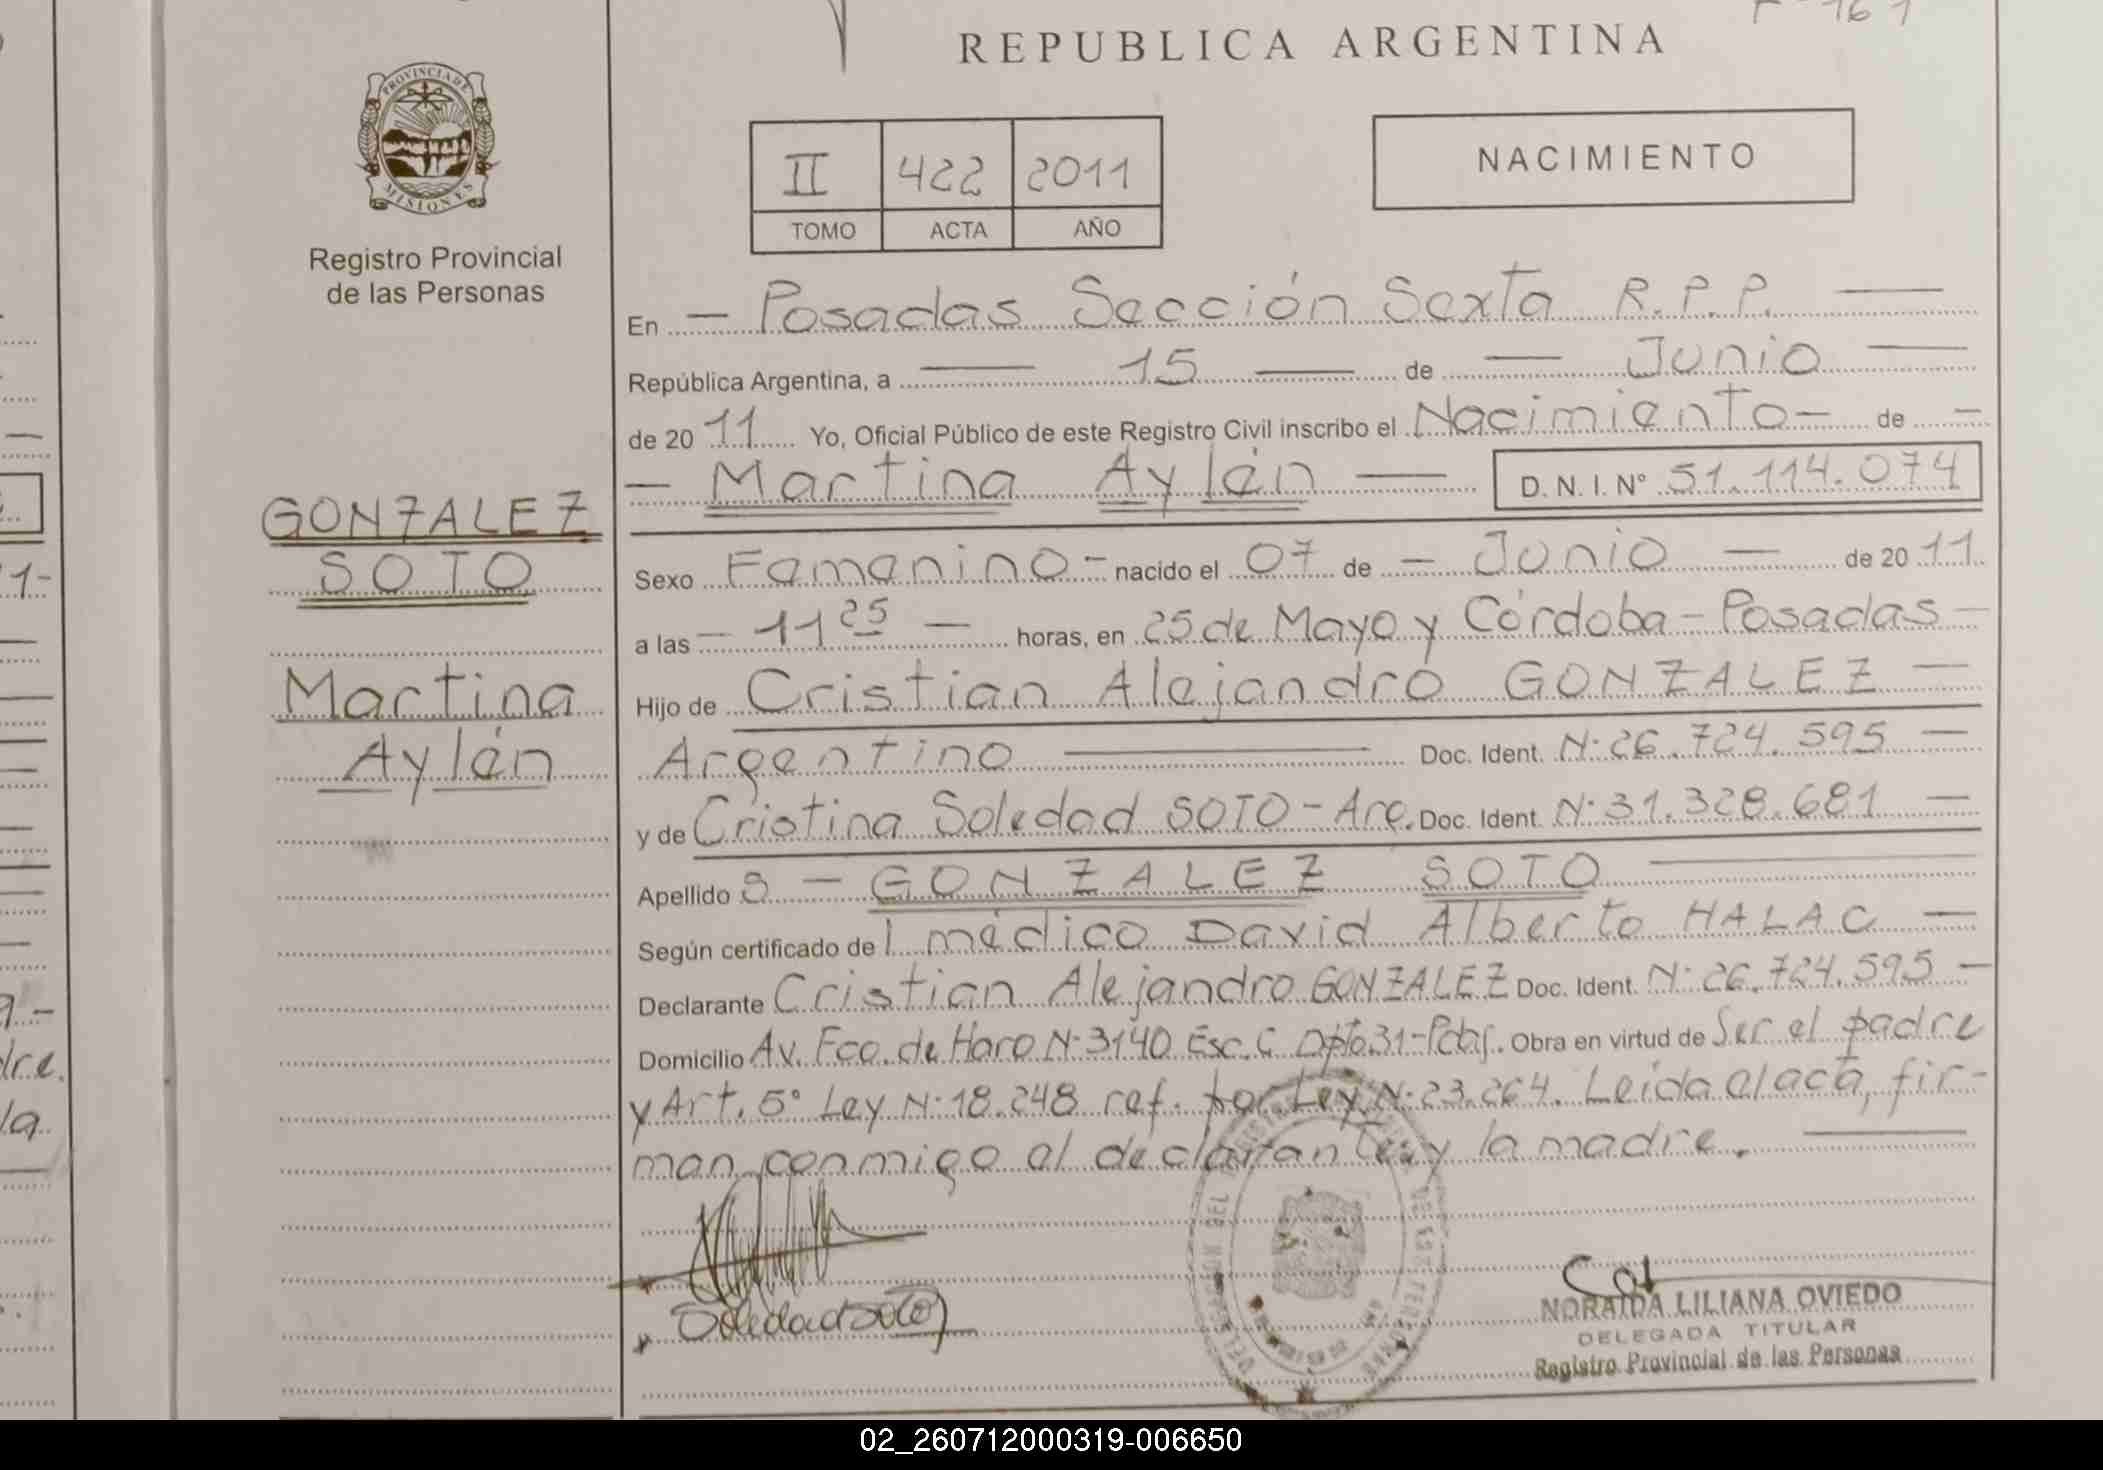 REPUBLICA ARGENTINA
PROVINCIA DE
MISIONES
Registro Provincial
de las Personas
II 422 2011
TOMO ACTA AÑO
NACIMIENTO
En — Posadas Sección Sexta R.P.P. —
República Argentina, a — 15 — de — Junio —
de 20 11 Yo, Oficial Público de este Registro Civil inscribo el Nacimiento — de —
— Martina Aylén — D. N. I. Nº 51.114.074
GONZALEZ
SOTO
Martina
Aylén
Sexo Femenino - nacido el 07 de — Junio — de 20 11
a las — 11 25 — horas, en 25 de Mayo y Córdoba - Posadas —
Hijo de Cristian Alejandro GONZALEZ —
Argentino — Doc. Ident. Nº 26.724.595 —
y de Cristina Soledad SOTO - Arg. Doc. Ident. Nº 31.328.681 —
Apellido S — GONZALEZ SOTO —
Según certificado de l médico David Alberto HALAC —
Declarante Cristian Alejandro GONZALEZ Doc. Ident. Nº 26.724.595 —
Domicilio Av. Fco. de Haro Nº 3140 Esc. C Dpto 31 - Obra en virtud de Ser el padre
y Art. 5º Ley Nº 18.248 ref. por Ley Nº 23.264. Leida el acta, fir-
man conmigo el declarante y la madre. —
Soledad Soto
NORAIDA LILIANA OVIEDO
DELEGADA TITULAR
Registro Provincial de las Personas
02_260712000319-006650